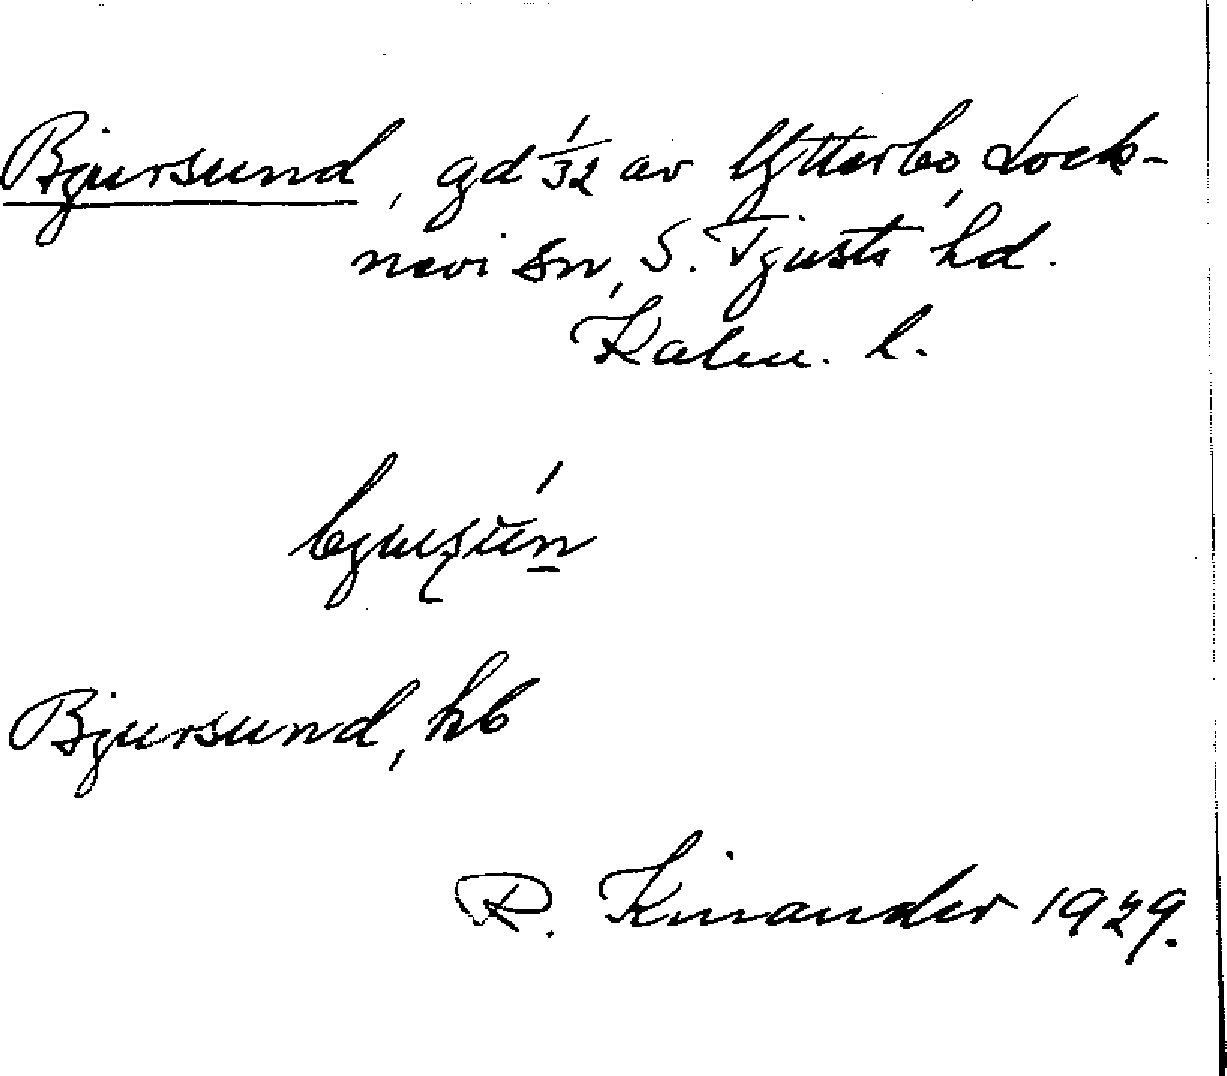 Bjursund, gd 1/32 av Ytterbo, Lock-
nevi sn, S. Tjusts hd.
Kalm. l.
Bjursund, hb
R. Kinander 1929.